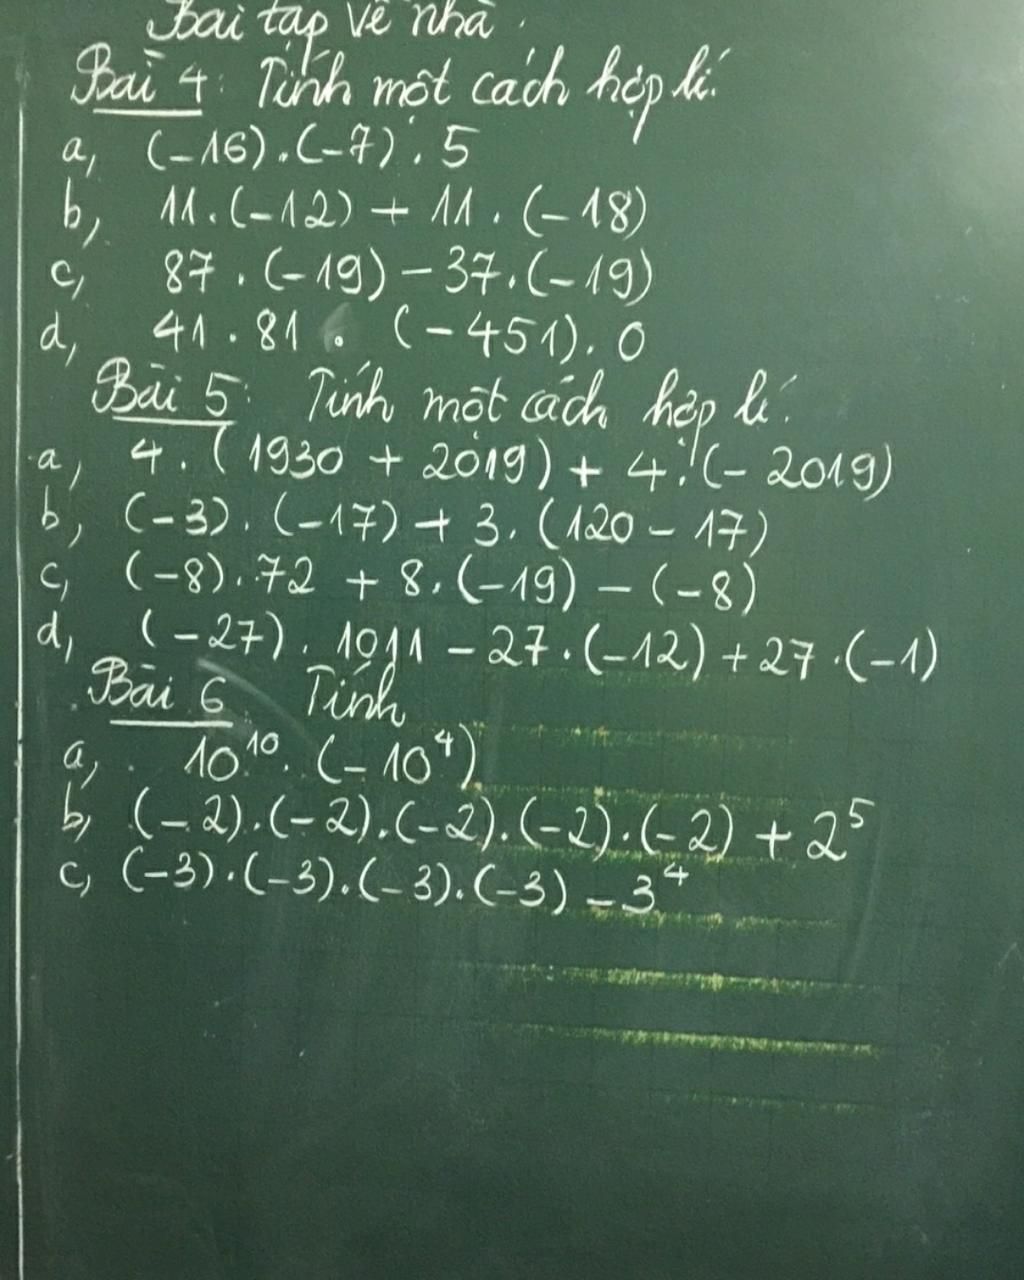 Bài tập về nhà.
Bài 4: Tính một cách hợp lí.
a, (-16).(-7).5
b, 11.(-12) + 11.(-18)
c, 87.(-19) - 37.(-19)
d, 41.81.(-451).0
Bài 5: Tính một cách hợp lí.
a, 4.(1930 + 2019) + 4.(-2019)
b, (-3).(-17) + 3.(120 - 17)
c, (-8).72 + 8.(-19) - (-8)
d, (-27).1011 - 27.(-12) + 27.(-1)
Bài 6 Tính
a, 10¹⁰.(-10⁴)
b, (-2).(-2).(-2).(-2).(-2) + 2⁵
c, (-3).(-3).(-3).(-3) - 3⁴